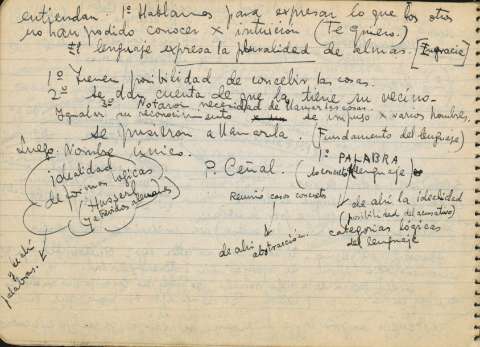 entiendan. 1º Hablamos para expresar lo que los otros
no han podido conocer x intuición (Te quiero.)
El lenguaje expresa la pluralidad de almas. [Zugracio]
1º Tienen posibilidad de concebir las cosas.
2º se dan cuenta de que la tiene su vecino.
3º Notaron necesidad de llamar las cosas.
su reconocimiento se impuso x varios hombres.
se pusieron a llamarla. (Fundamento del lenguaje)
Luego. Nombre único.
idealidad
de formas lógicas
(Husserl
alemanes)
y de ahí
palabras.
P. Ceñal.
Reunió casos concretos
de ahí
abstracción.
1º PALABRA
lenguaje
de ahí la idealidad
(posibilidad del
categorías lógicas
del lenguaje